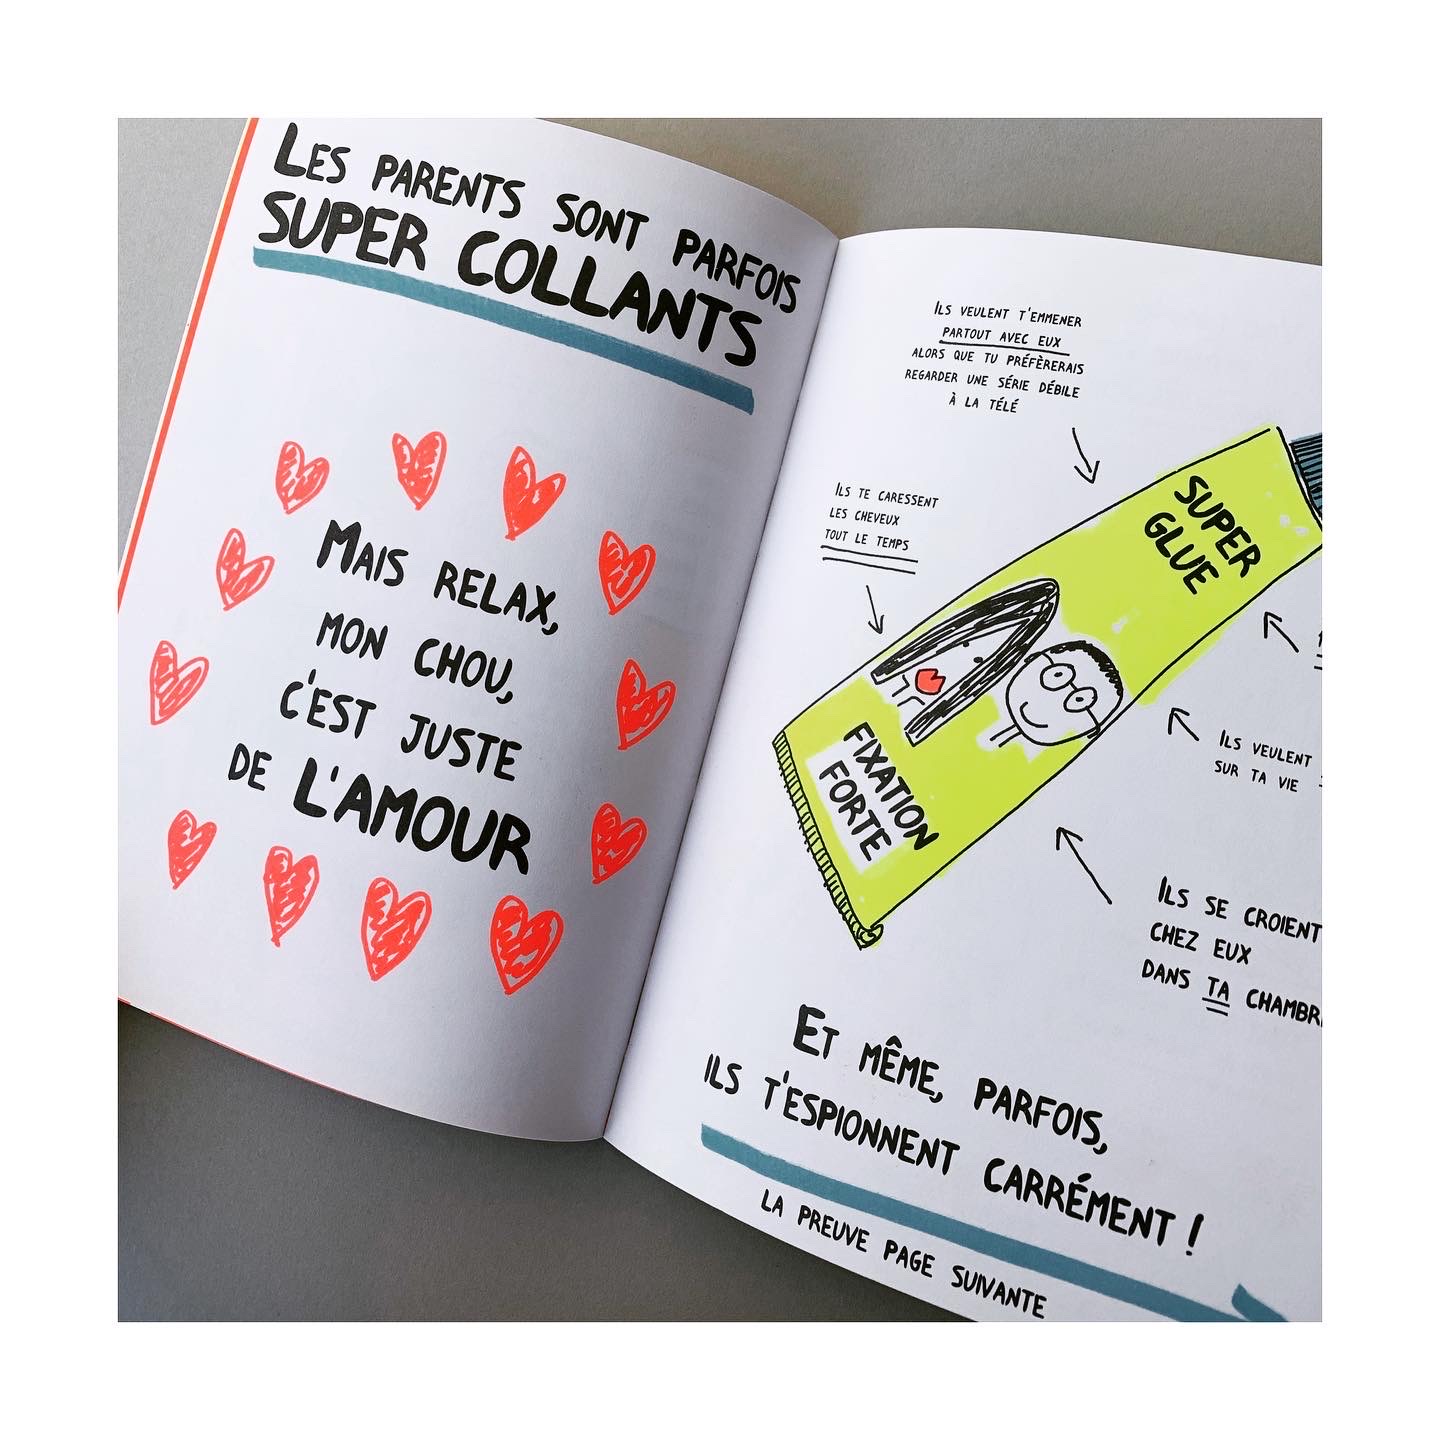 Les parents sont parfois
SUPER COLLANTS
Mais relax,
mon chou,
c'est juste
de L'AMOUR
Ils veulent t'emmener
partout avec eux
alors que tu préfèrerais
regarder une série débile
à la télé
Ils te caressent
les cheveux
tout le temps
SUPER
GLUE
FIXATION
FORTE
Ils veulent
sur ta vie
Ils se croient
chez eux
dans ta
Et même, parfois,
ils t'espionnent carrément !
la preuve page suivante